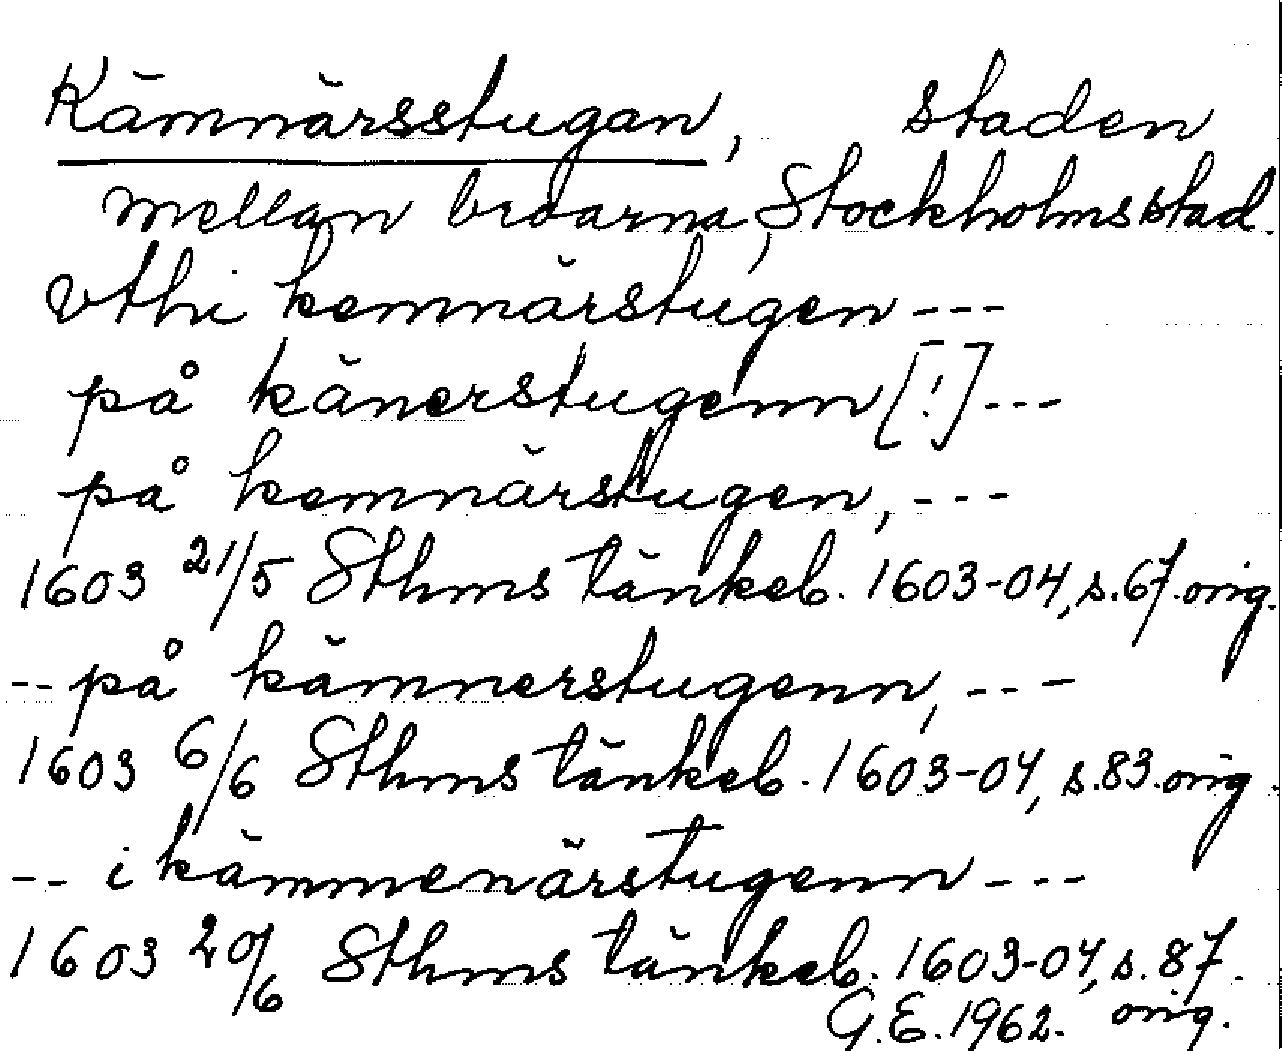 Kämnärsstugan, staden
mellan broarna, Stockholms stad.
vthi kemnärstugen ---
på känerstugenn [!] ---
på kemnärstugen, ---
1603 21/5 Sthms tänkeb. 1603-04, s. 67. orig.
-- på kämnerstugenn, ---
1603 6/6 Sthms tänkeb. 1603-04, s. 83. orig.
-- i kämmenärstugenn ---
1603 20/6 Sthms tänkeb. 1603-04, s. 87.
G.E. 1962. orig.